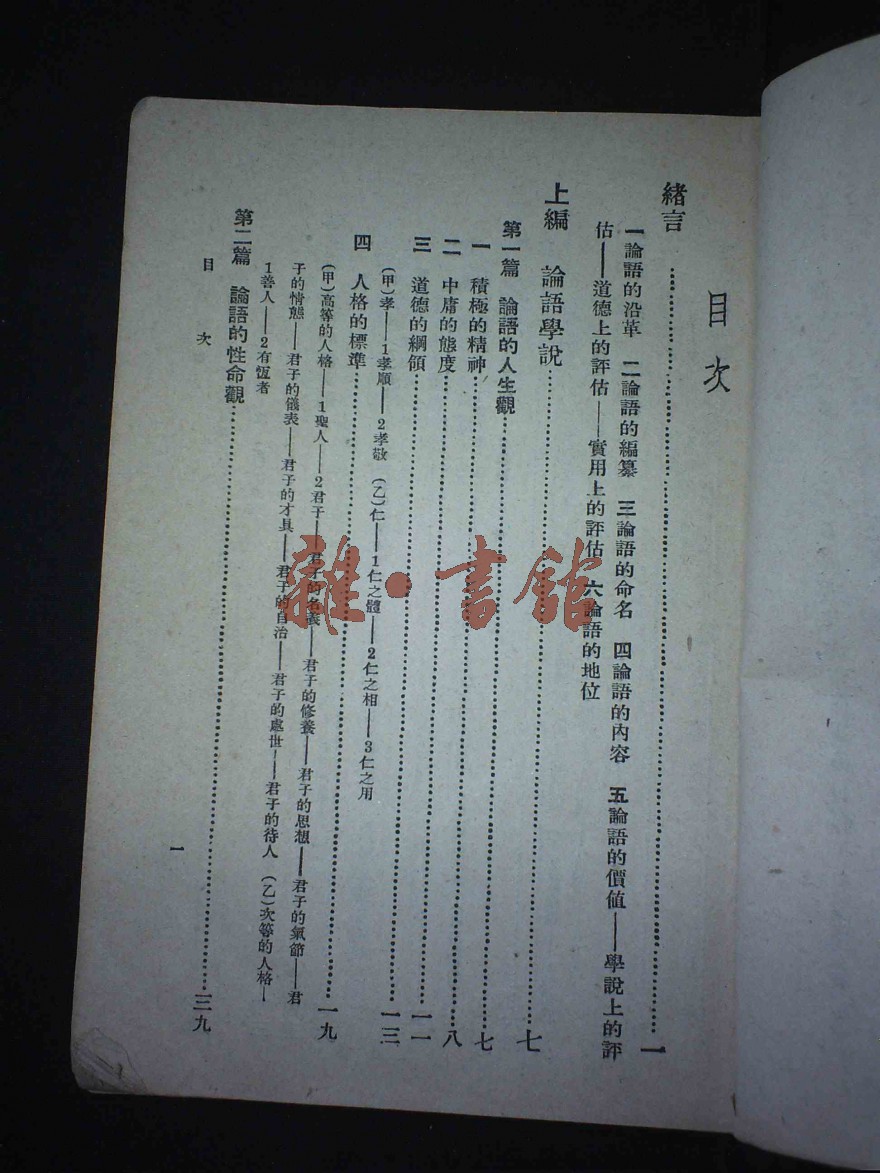 目次
緒言……………………一
一論語的沿革　二論語的編纂　三論語的命名　四論語的內容　五論語的價值——學說上的評
估——道德上的評估——實用上的評估　六論語的地位
上編　論語學說……………………七
第一篇　論語的人生觀……………………七
一　積極的精神……………………八
二　中庸的態度……………………一一
三　道德的綱領……………………一三
(甲)孝——1孝順——2孝敬　(乙)仁——1仁之體——2仁之相——3仁之用
四　人格的標準……………………一九
(甲)高等的人格——1聖人——2君子——君子的名義——君子的修養——君子的思想——君子的氣節——君
子的情態——君子的儀表——君子的才具——君子的自治——君子的處世——君子的待人　(乙)次等的人格—
1善人——2有恆者
第二篇　論語的性命觀……………………三九
目次
一
雜·書館